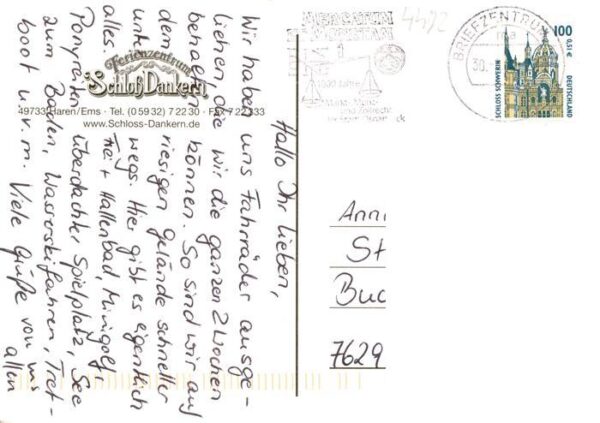 Hallo Ihr Lieben,
Wir haben uns Fahrräder ausge-
liehen, die wir die ganzen 2 Wochen
behalten können. So sind wir auf
dem riesigen Gelände schneller
unterwegs. Hier gibt es eigentlich
alles: Frei + Hallenbad, Minigolf,
Ponyreiten, überdachter Spielplatz, See
zum Baden, Wasserskifahren, Tret-
boot u.s.m. Viele Grüße von uns
allen
Ferienzentrum
Schloß Dankern
49733 Haren/Ems · Tel. (0 59 32) 7 22 30 · Fax 7 22 333
www.Schloss-Dankern.de
4472
BRIEFZENTRUM
30.
100
0,51 €
SCHLOSS SCHWERIN
DEUTSCHLAND
Anni
St
Buc
7629